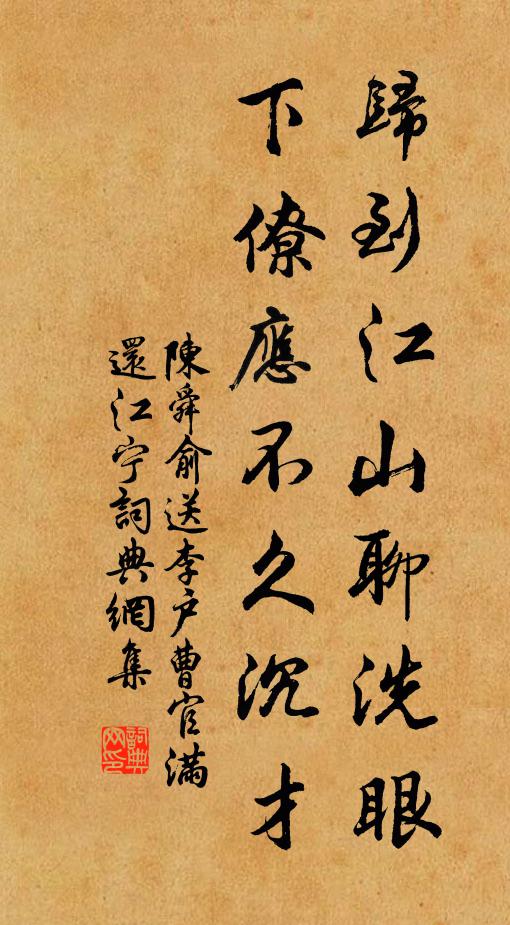 歸到江山聊洗眼
下僚應不久沉才
陳舜俞送李戶曹官滿
還江宁詞典網集
詞典
网印